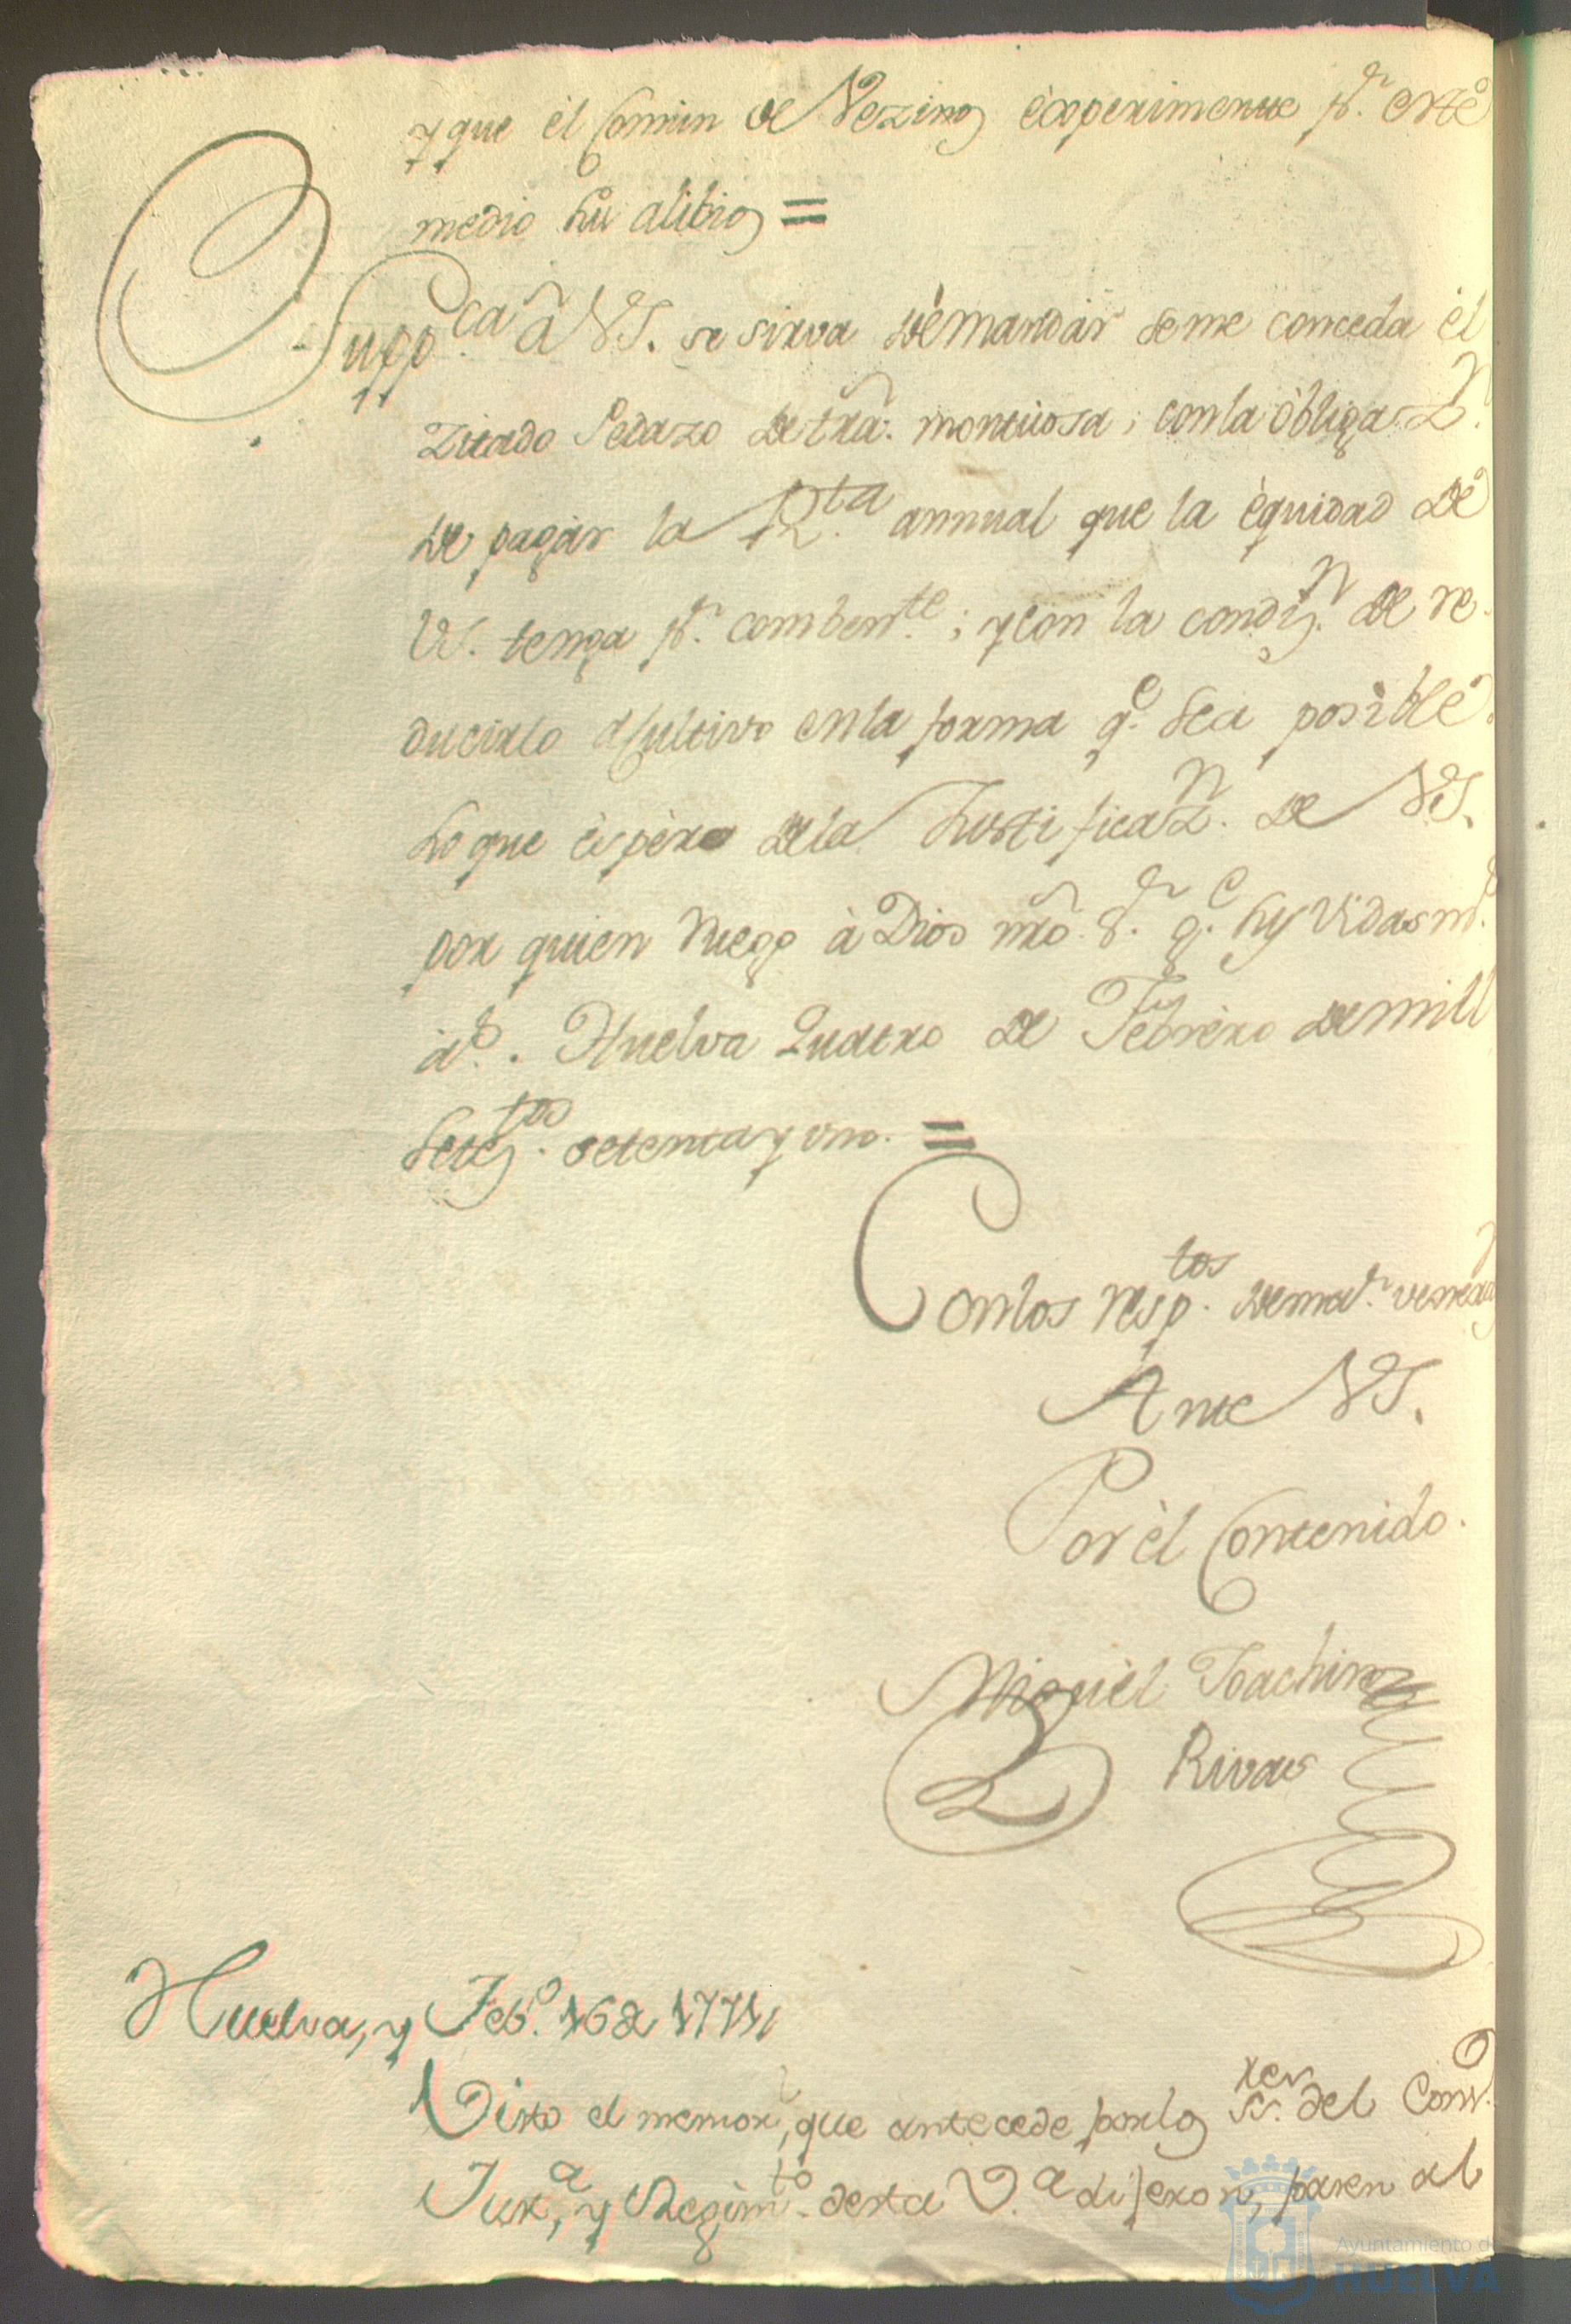 y que él Comun de Vezinos éxperimente pr. este
medio su alibio =
Suppca. â VS. se sirva de mandár se me conceda él
Zitado Pedazo de trrâ. montuosa; con la óbligazn.
de pagár la Rta. annual que la équidad de
VS. tenga pr. combente.; y con la condizn. de re-
ducirlo á Cultivo en la forma qe. sea posible.
Lo que éspéra de la Justificazn. de VS.
por quien Ruego à Dios nrô. Sr. ge. su Vida ms.
as. Huelva Quatro de Febréro de mill
Setetos. setenta y uno. =
Con los respetos. de mar. veneraz
Ante VS.
Por él Contenido.
Miguél Joachin
Rivas
Huelva, y Febo. 16 de 1771,
Visto el memorl, que antecede por los SSres. del Conso.
Justa, y Regimto. desta Va. dijeron, pasen al
Ayuntamiento d
HUELVA